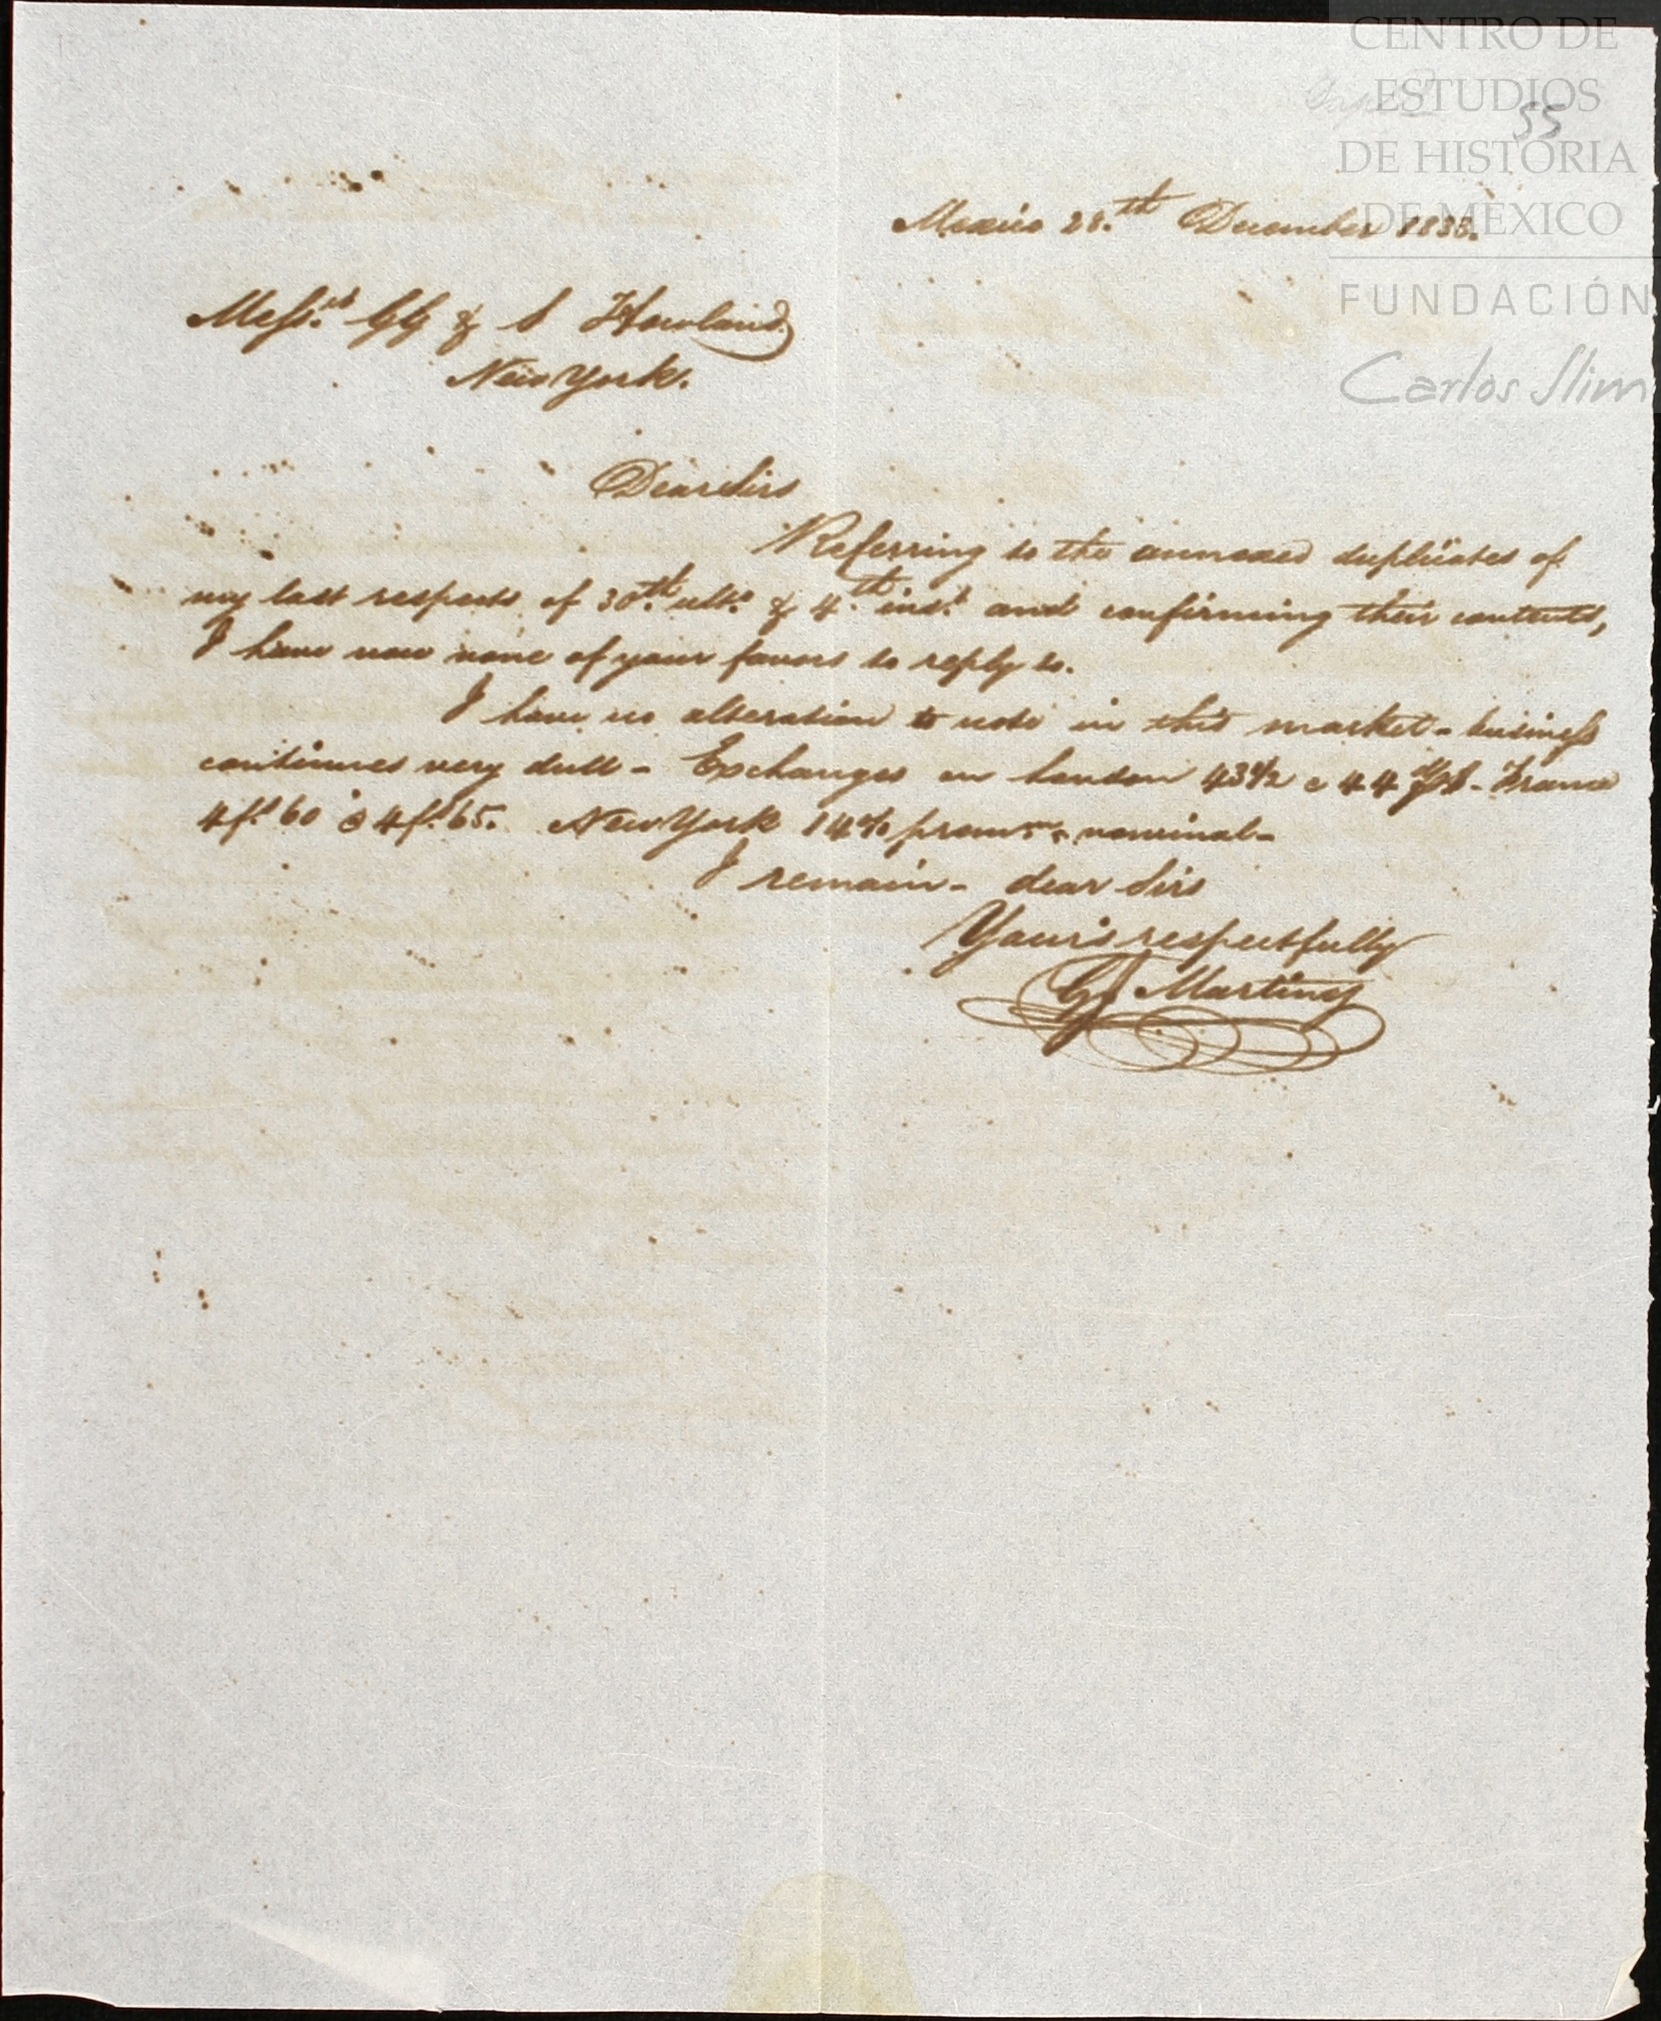 CENTRO DE
ESTUDIOS
55
DE HISTORIA
DE MÉXICO
FUNDACIÓN
Carlos Slim
Mexico 28.th December
Mess.rs GG & S Howland
New York.
Dear Sirs
Referring to the annexed duplicates of
my last respects of 30th. ulto. & 4th. inst. and confirming their contents,
I have now none of your favors to reply to.
I have no alteration to note in this market - business
continues very dull - Exchanges on London 43½ a 44 France
4f. 60 @ 4f. 65. New York 14% prem. nominal -
I remain - dear Sirs
Your's respectfully
Martinez